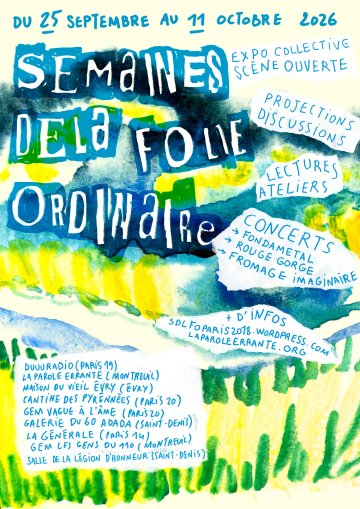 DU 25 SEPTEMBRE AU 11 OCTOBRE 2026
EXPO COLLECTIVE
SCÈNE OUVERTE
SEMAINES
DE LA FOLIE
ORDINAIRE
PROJECTIONS
DISCUSSIONS
LECTURES
ATELIERS
CONCERTS
→ FONDAMETAL
→ ROUGE GORGE
→ FROMAGE IMAGINAIRE
+ D'INFOS
SDLFOPARIS2018.WORDPRESS.COM
LAPAROLEERRANTE.ORG
DUUURADIO (PARIS 19)
LA PAROLE ERRANTE (MONTREUIL)
MAISON DU VIEIL ÉVRY (ÉVRY)
CANTINE DES PYRENNÉES (PARIS 20)
GEM VAGUE À L'ÂME (PARIS 20)
GALERIE DU 60 ADADA (SAINT-DENIS)
LA GÉNÉRALE (PARIS 14)
GEM LES GENS DU 110 (MONTREUIL)
SALLE DE LA LÉGION D'HONNEUR (SAINT-DENIS)